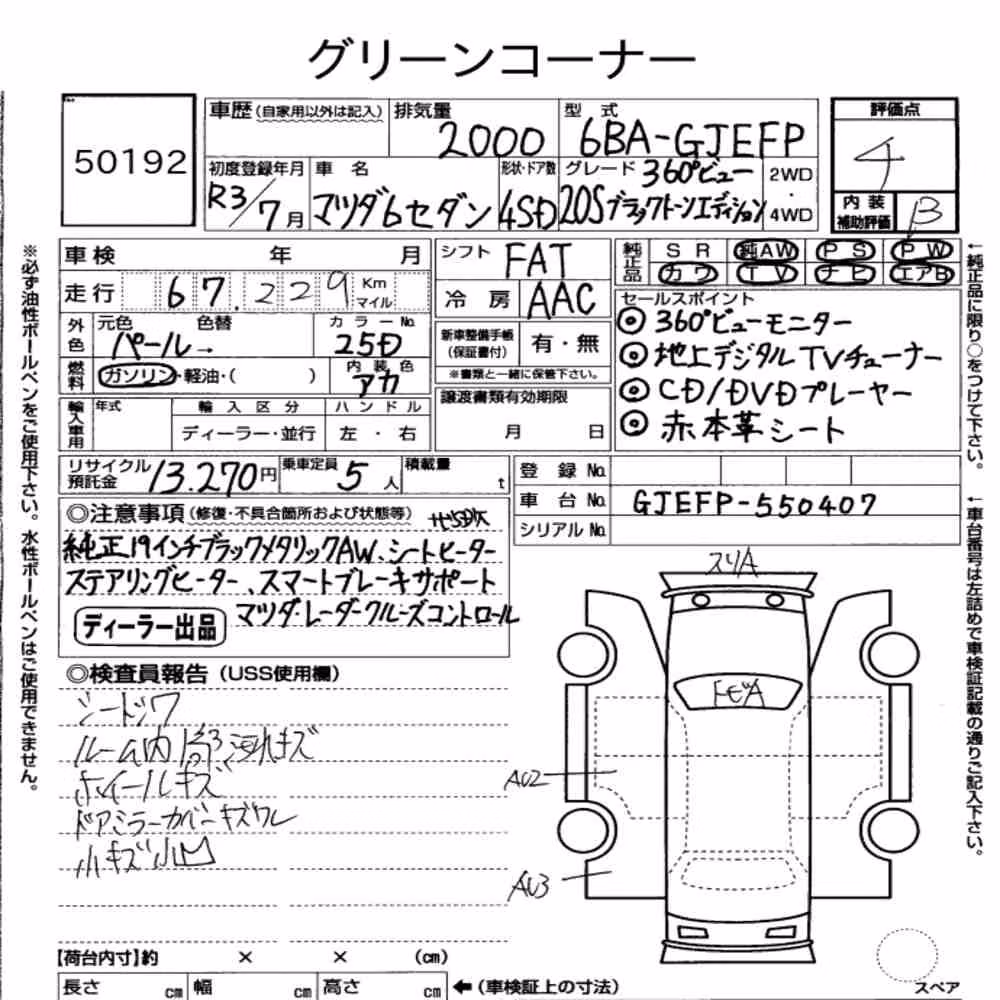 グリーンコーナー
50192
車歴(自家用以外は記入) 排気量 2000 型式 6BA-GJEFP
初度登録年月 R3/7月 車名 マツダ6セダン 形状・ドア数 4SD グレード 360°ビュー 20Sブラックトーンエディション 2WD・4WD
評価点 4
内装補助評価 B
車検 年 月
走行 67.229 Km マイル
外色 元色 パール→ 色替 カラーNo. 25D
燃料 ガソリン・軽油・( ) 内装色 アカ
輸入車用 年式 輸入区分 ディーラー・並行 ハンドル 左・右
シフト FAT
冷房 AAC
新車整備手帳(保証書付) 有・無
※書類と一緒に保管下さい。
譲渡書類有効期限 月 日
純正品 SR 純AW PS PW
カワ TV ナビ エアB
セールスポイント
◎360°ビューモニター
◎地上デジタルTVチューナー
◎CD/DVDプレーヤー
◎赤本革シート
リサイクル預託金 13.270円 乗車定員 5人 積載量 t
登録No.
車台No. GJEFP-550407
シリアルNo.
◎注意事項(修復・不具合箇所および状態等)
純正19インチブラックメタリックAW、シートヒーター
ステアリングヒーター、スマートブレーキサポート
マツダ・レーダークルーズコントロール
ディーラー出品
◎検査員報告(USS使用欄)
シートシワ
ルーム内 汚れキズ
ホイールキズ
ドアミラーカバーキズワレ
小キズ小凹
スリA
トビA
AU2
AU3
【荷台内寸】約 × × (cm)
長さ cm 幅 cm 高さ cm ←(車検証上の寸法)
スペア
※必ず油性ボールペンをご使用下さい。水性ボールペンはご使用できません。
←純正品に限り○をつけて下さい。
←車台番号は左詰めで車検証記載の通りご記入下さい。